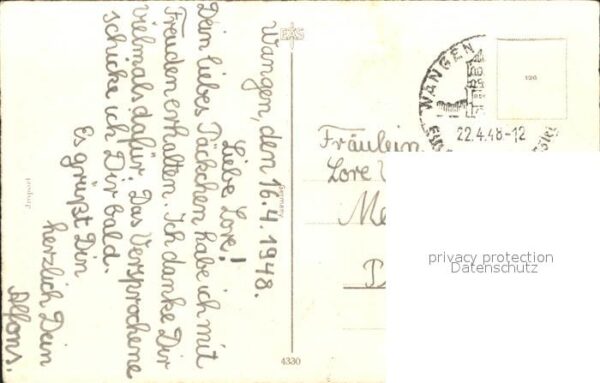 Wangen, den 16.4.1948.
Liebe Lore!
Dein liebes Päckchen habe ich mit
Freuden erhalten. Ich danke Dir
vielmals dafür. Das Versprochene
schicke ich Dir bald.
Es grüßt Din
herzlich Dein
Alfons.
EAS
Germany
4330
WANGEN
22.4.48-12
Fräulein
Lore
Me
privacy protection
Datenschutz